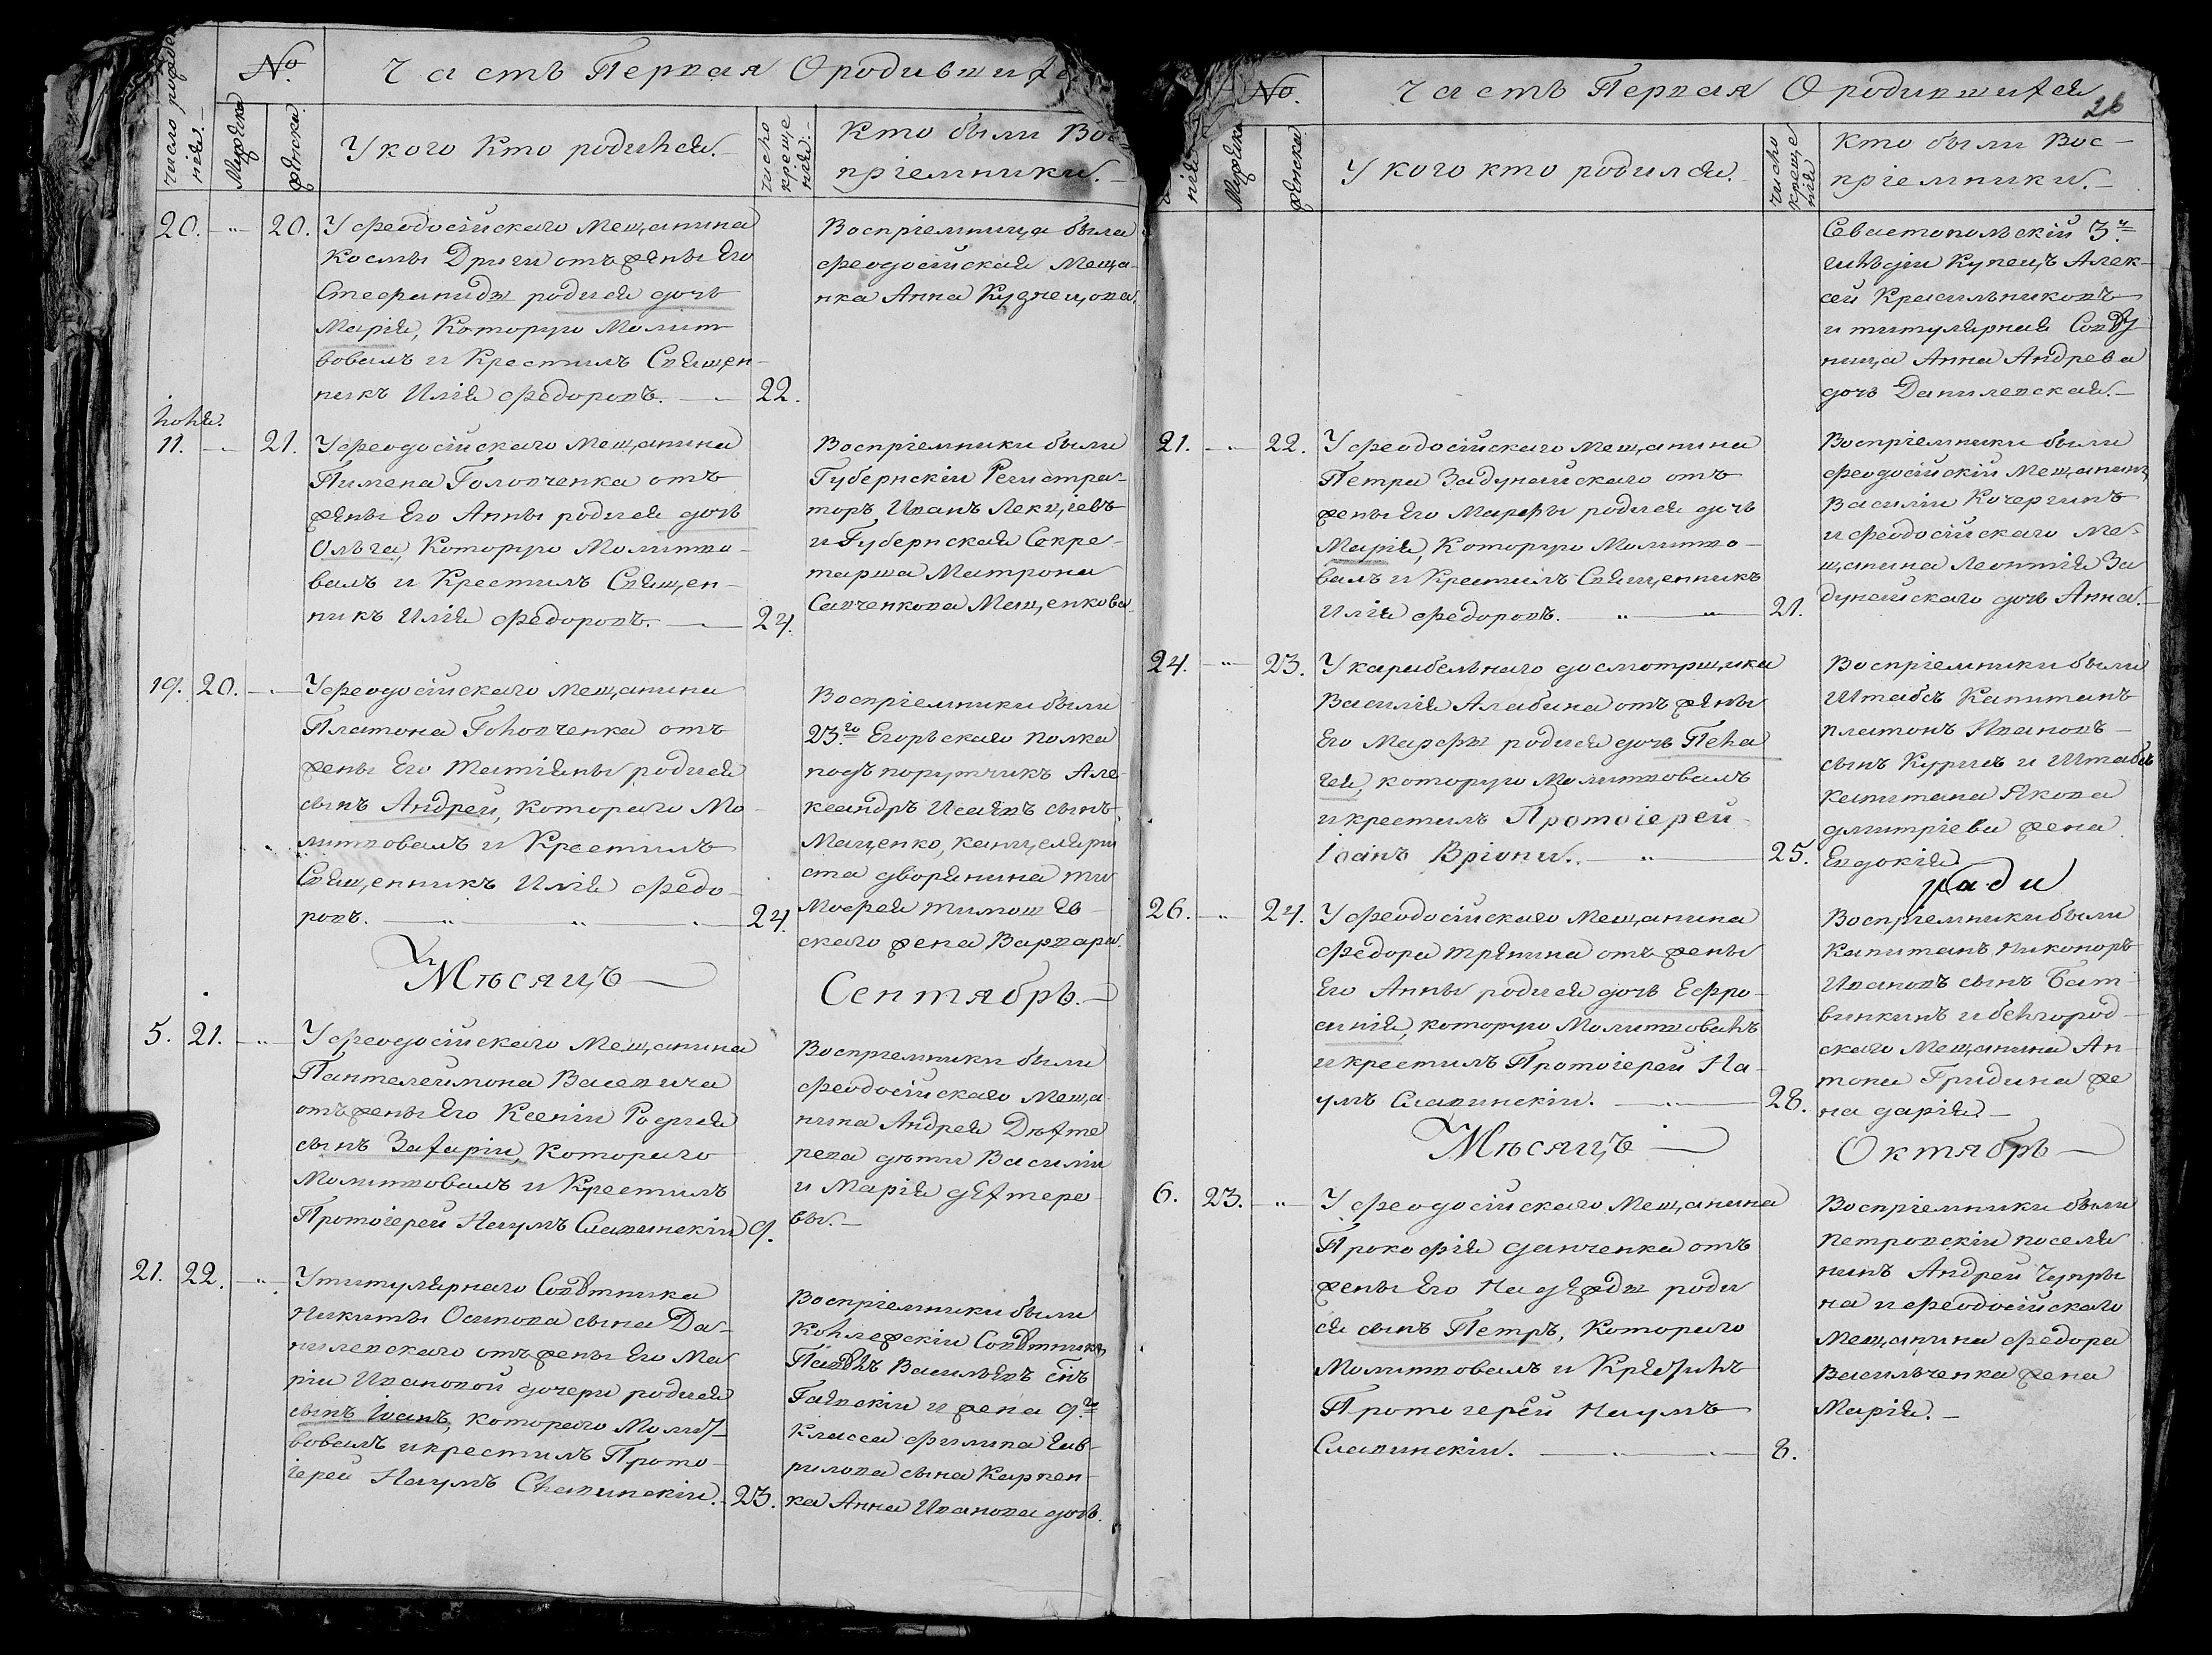 Число рожде
нія.
№
Мужеска
Женска.
Часть Первая О родившихся
У кого Кто родился.
Число
креще
нія.
Кто были Вос-
пріемники.
20. 20. У феодосійскаго мещанина
Космы Дриги отъ жены Его
Стефаниды родися дочь
Марія, Которую Молит
вовалъ и Крестилъ Священ-
никъ Илія Федоровъ. 22.
Воспріемница была
феодосійская Меща-
нка Анна Кузнецова.
Іюля.
11. 21. У феодосійскаго мещанина
Пимена Головченка отъ
жены Его Анны родися дочь
Ольга, Которую Молитво-
валъ и Крестилъ Священ-
никъ Илія Федоровъ. 24.
Воспріемники были
Губернскій Регистра-
торъ Иванъ Лекціевъ
и Губернская Секре-
тарша Матрона
Савченкова Мещенкова
19. 20. У феодосійскаго мещанина
Платона Головченка отъ
жены Его Татіяны родися
сынъ Андрей, Котораго Мо-
литвовалъ и Крестилъ
Священникъ Илія Федо-
ровъ. 24.
Воспріемники были
23.го Егорьскаго полка
подъ порутчикъ Але-
ксандръ Исаевъ сынъ
Маценко, канцеляри
ста дворянина ти
Мофея тимошев
скаго жена Варвара.
Мѣсяцъ Сентябрь.
5. 21. У феодосійскаго Мещанина
Пантелеймона Васевича
отъ жены Его Ксеніи Родися
сынъ Захарій, Котораго
Молитвовалъ и Крестилъ
Протоіерей Наумъ Славинскій 9.
Воспріемники были
феодосійскаго Меща-
нина Андрея Дехте
рева дети Василій
и Марія дехтере
вы.
21. 22. У титулярнаго Совѣтника
Никиты Осипова сына Да-
нилевскаго отъ жены Его Ма
ріи Ивановой дочери родися
сынъ Іоанъ, котораго Молит-
вовалъ и крестилъ Прото-
іерей Наумъ Славинскій. 23.
Воспріемники были
Коллежскій Совѣтникъ
Павелъ Васильевъ сынъ
Гаевскій и жена 9.го
Класса филипа Гав-
рилова сына Карпен-
ка Анна Иванова дочь.
№.
нія
Мужеска
Женска
Часть Первая О родившихся
26
У кого кто родился.
Число
креще
нія
Кто были Вос-
пріемники.
Севастопольскій 3.й
гильдіи Купецъ Алек-
сей Красильниковъ
и титулярная Совѣт
ница Анна Андрева
дочь Данилевская.
21. 22. У феодосійскаго мещанина
Петра Задунайскаго отъ
жены Его Марфы родися дочь
Марія, Которую Молитво-
валъ и Крестилъ Священникъ
Илія Федоровъ. 21.
Воспріемники были
феодосійскій Мещанинъ
Василій Кочергинъ
и феодосійскаго Ме-
щанина Леонтія За
дунайскаго дочь Анна.
24. 23. У карабельнаго досмотрщика
Василія Алабина отъ жены
Его Марфы родися дочь Пела
гея, которую Молитвовалъ
и крестилъ Протоіерей
Іоанъ Вріони. 25.
Воспріемники были
Штабсъ Капитанъ
платонъ Ивановъ
сынъ Куришъ и Штабсъ
капитана Якова
дмитріева жена
Евдокія
26. 24. У феодосійскаго мещанина
Федора трянина отъ жены
Его Анны родися дочь Ефро-
синія, которую Молитвовалъ
и крестилъ Протоіерей На-
умъ Славинскій. 28.
Воспріемники были
Капитанъ Никоноръ
Ивановъ сынъ Бат-
винкинъ и белгород-
скаго Мещанина Ан-
тона Гридина же
на дарія.
Мѣсяцъ Октябрь
6. 23. У феодосійскаго Мещанина
Прокофія данченка отъ
жены Его Надежды роди
ся сынъ Петръ, Котораго
Молитвовалъ и Крестилъ
Протоіерей Наумъ
Славинскій. 8.
Воспріемники были
петровскій поселя
нинъ Андрей Чупры
на и феодосійскаго
Мещанина федора
Васильченка жена
Марія.